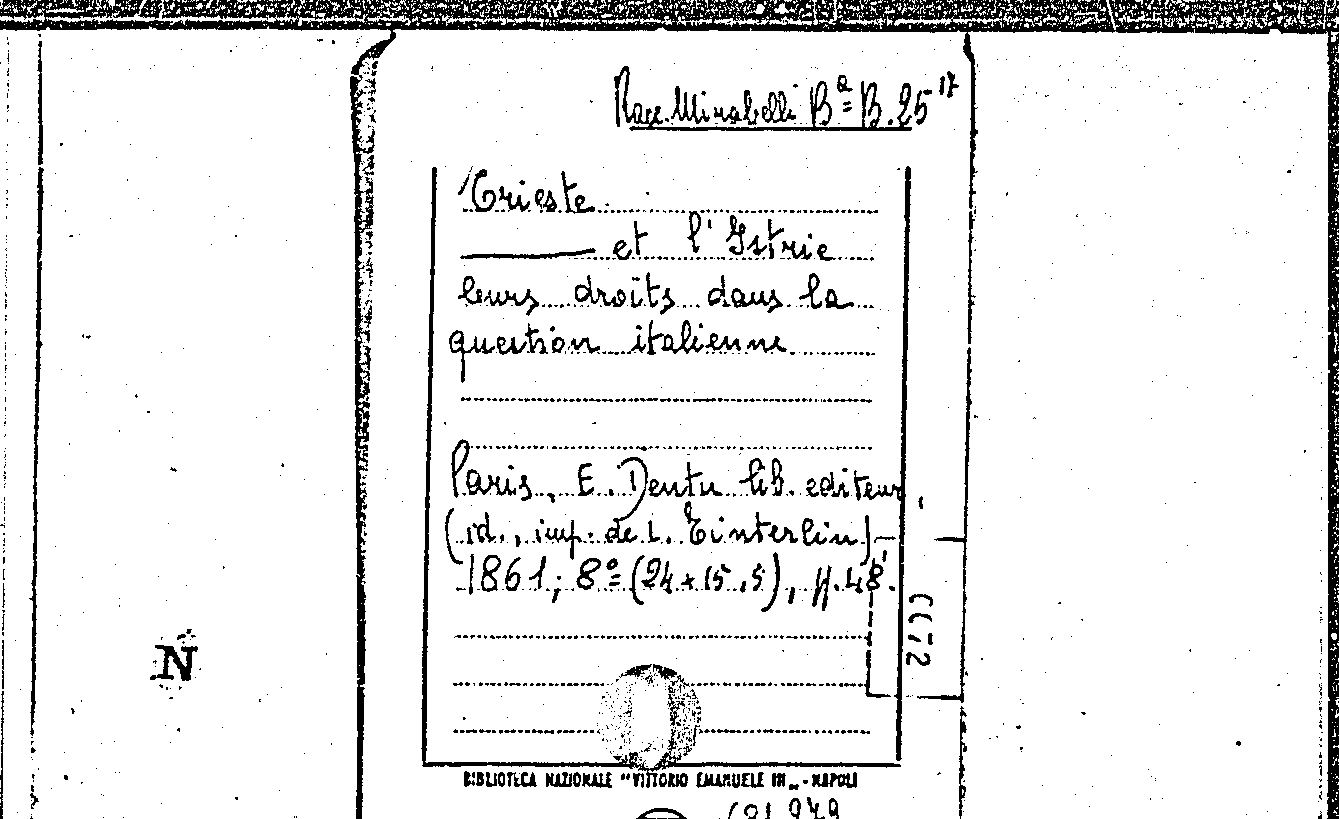 Racc. Mirabelli Bª B. 25 17
Trieste
——— et l'Istrie
leurs droits dans la
question italienne
Paris, E. Dentu lib. editeur,
(id., imp. de L. Tinterlin)
1861; 8º (24 x 15,5), pp. 48.
N
BIBLIOTECA NAZIONALE "VITTORIO EMANUELE III„ - NAPOLI